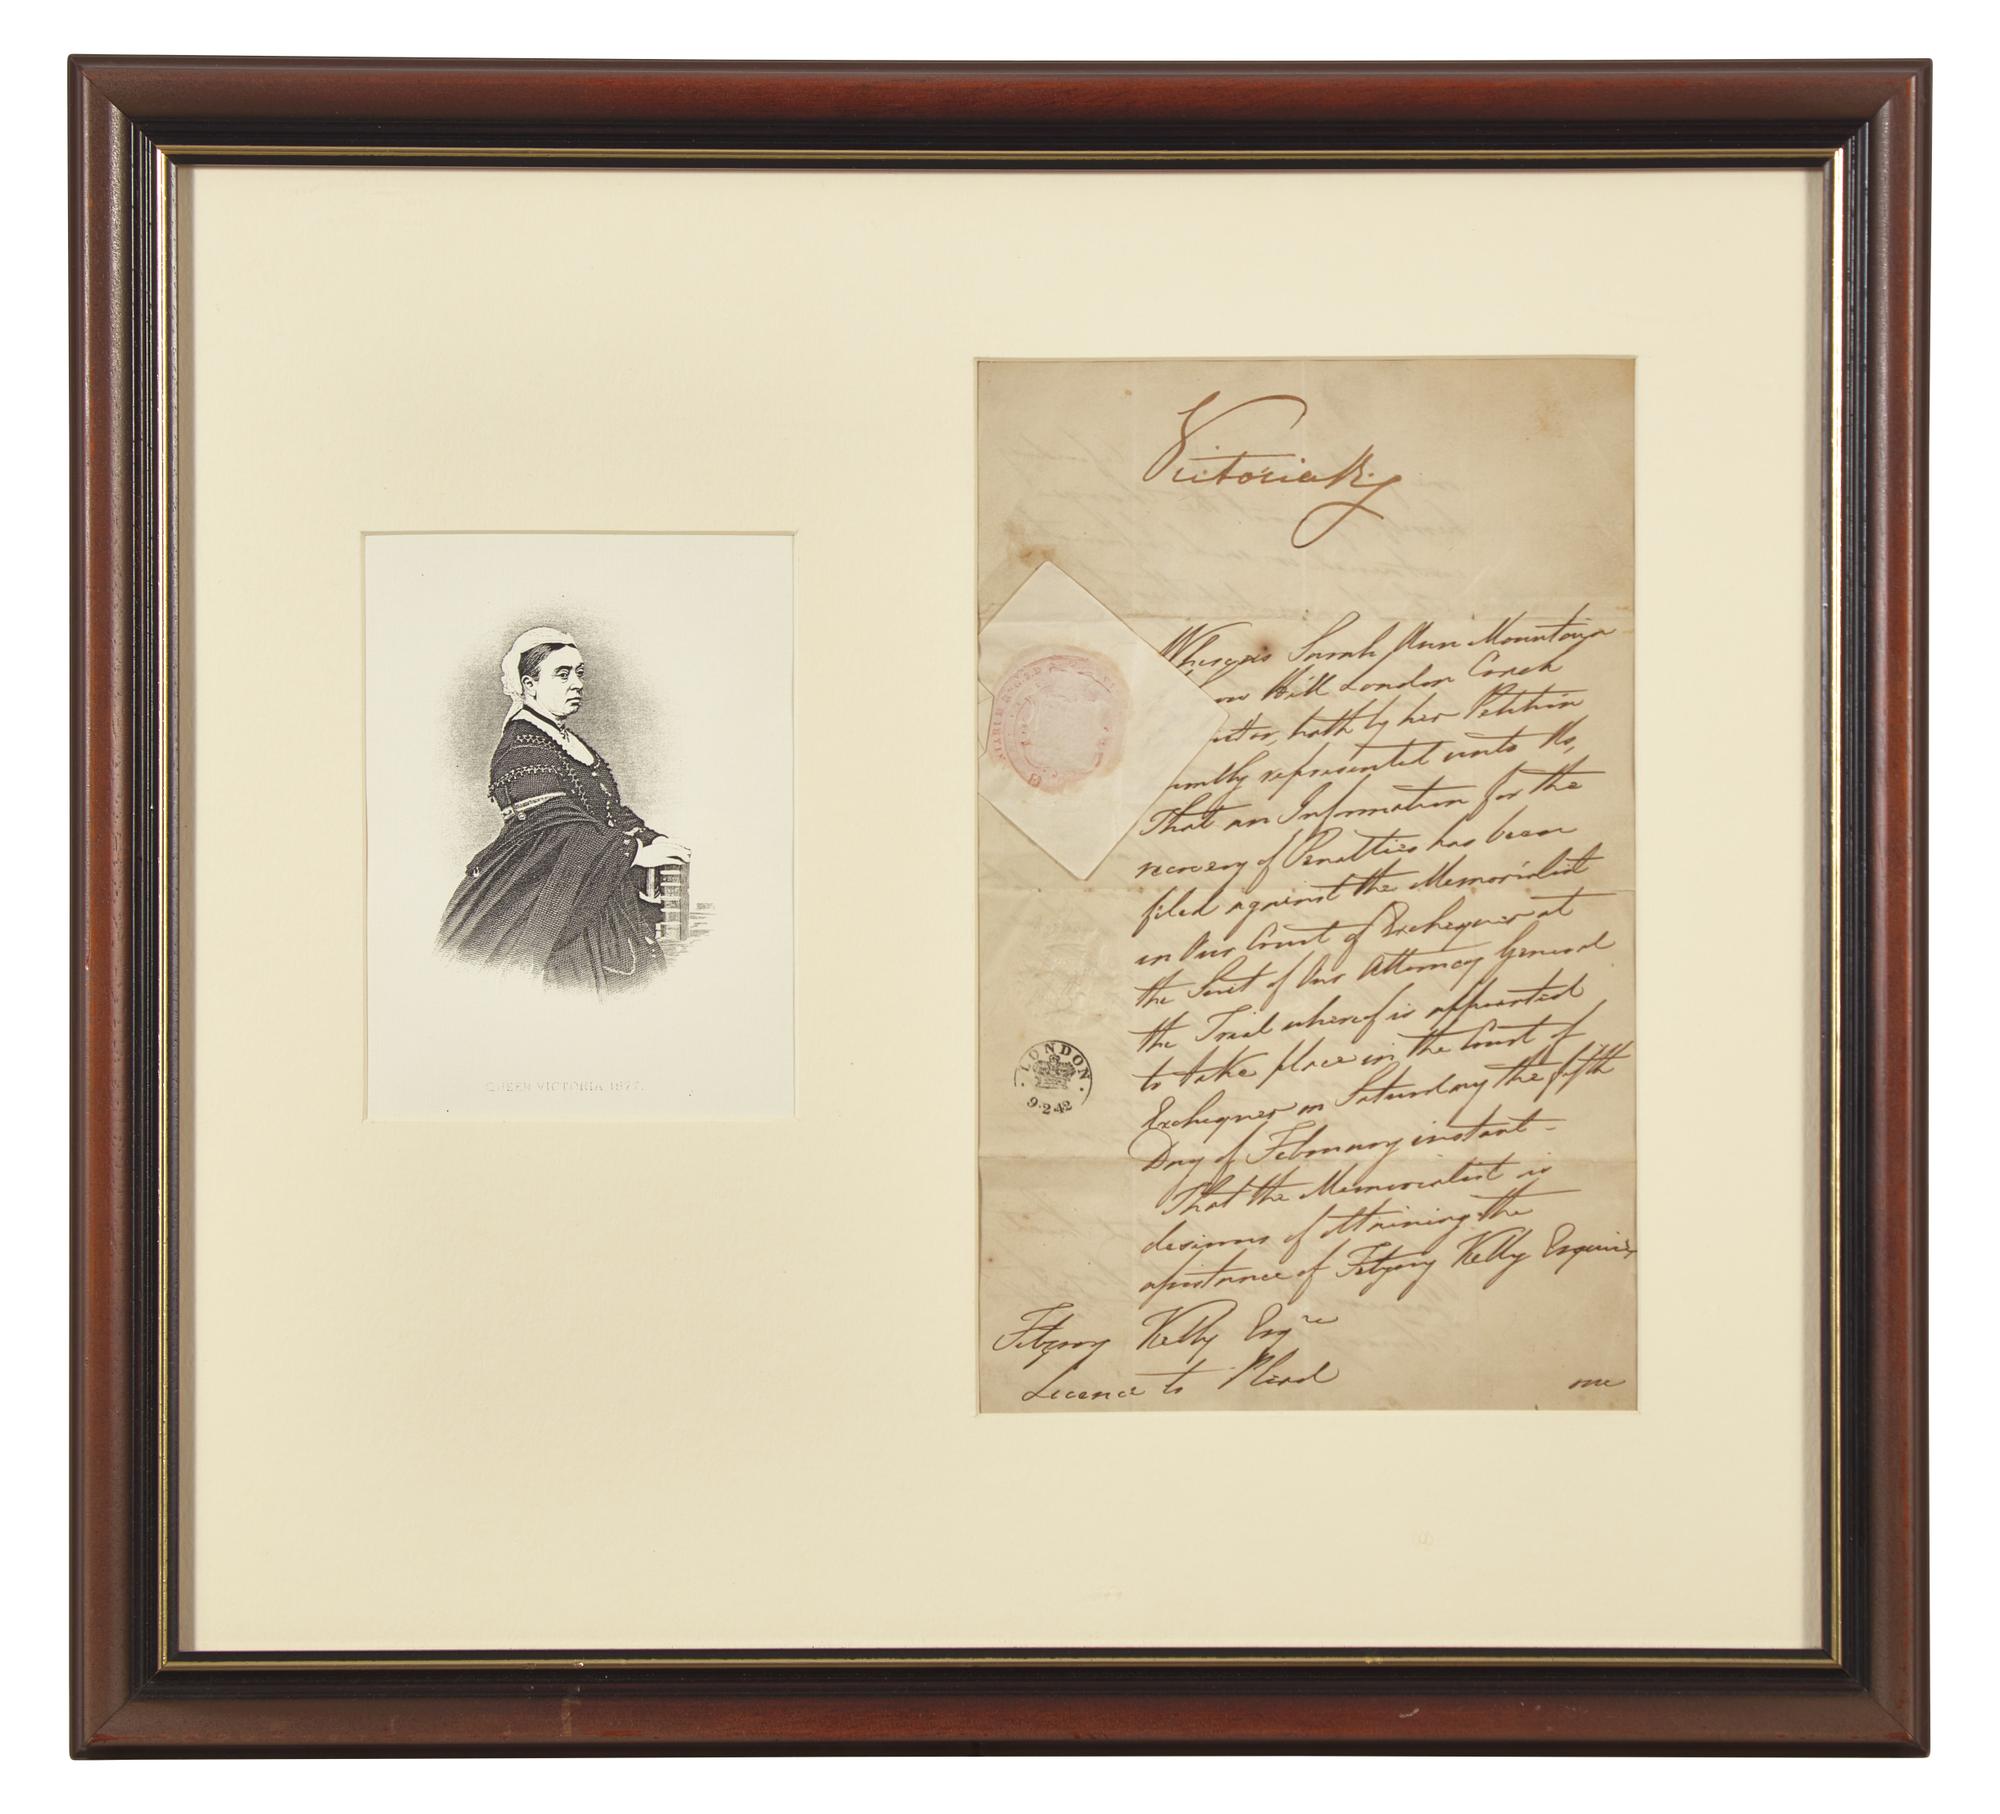 QUEEN VICTORIA 1877.
Victoria R
Whereas Sarah Ann Mountain
Hill London Coach
hath by her Petition
humbly represented unto Us,
That an Information for the
recovery of Penalties has been
filed against the Memorialist
in Our Court of Exchequer at
the Suit of Our Attorney General
the Trial whereof is appointed
to take place in the Court of
Exchequer on Saturday the fifth
Day of February instant -
That the Memorialist is
desirous of obtaining the
assistance of Fitzroy Kelly Esquire
LONDON
9·2·42
Fitzroy Kelly Esqre
Licence to Plead
one